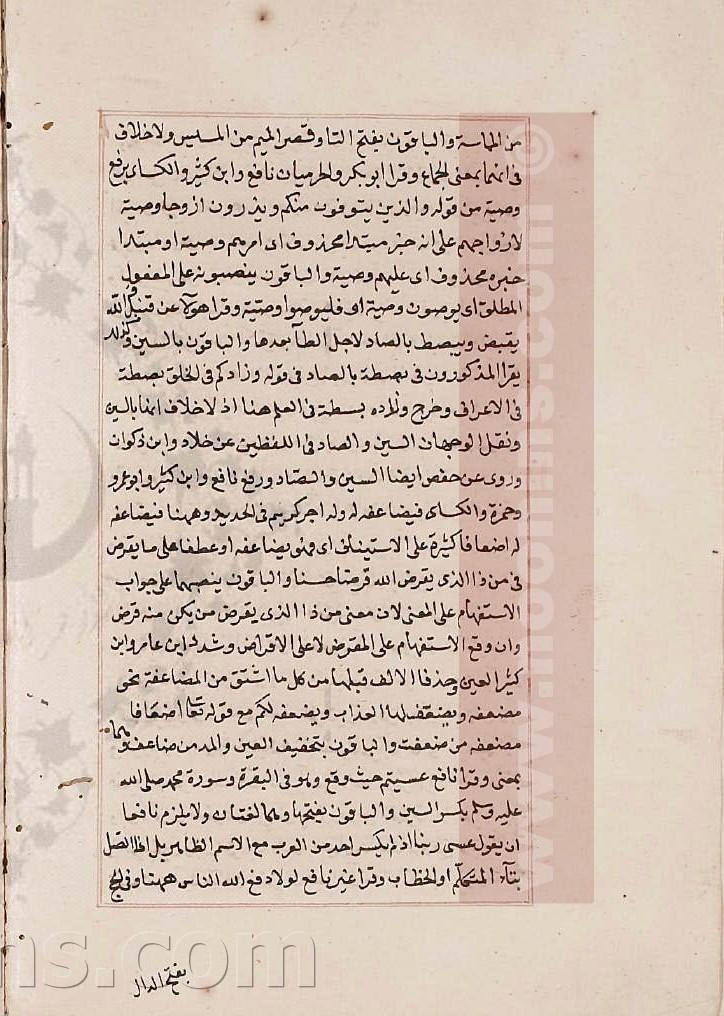 من المماسة والباقون بفتح التا وقصر الميم من المسيس ولا خلاف
فى انهما بمعنى الجماع وقرا ابو بكر والحرميان نافع وابن كثير والكساى برفع
وصية من قوله والذين يتوفون منكم ويذرون ازوجا وصية
لازواجهم على انه خبر مبتدا محذوف اى امرهم وصية او مبتدا
خبره محذوف اى عليهم وصية والباقون ينصبونه على المفعول
المطلق اى يوصون وصية اى فليوصوا وصية وقرا هولآ عن قنبل والله
يقبض ويبصط بالصاد لاجل الطآ بعدها والباقون بالسين وكذلد
يقرا المذكورون فى بصطة بالصاد فى قوله وزادكم فى الخلق بصطة
فى الاعراف وخرج وزاده بسطة فى العلم هنا اذ لا خلاف انها بالسين
ونقل الوجهان السين والصاد فى اللفظين عن خلاد وابن ذكوان
وروى عن حفص ايضا السين والصاد ورفع نافع وابن كثير وابو عمرو
وحمزة والكساى فيضاعفه له وله اجر كريم فى الحديد وههنا فيضاعفه
له اضعافا كثيرة على الاستيناف اى فهو يضاعفه او عطفا على ما يقرض
فى من ذا الذى يقرض الله قرضا حسنا والباقون ينصبهما على جواب
الاستفهام على المعنى لان معنى من ذا الذى يقرض من يكن منه قرض
وان وقع الاستفهام على المقرض لا على الاقراض وشدد ابن عامر وابن
كثير العين وحذفا الالف قبلها من كل ما اشتق من المضاعفة نحو
مضعفه ويضعف لها العذاب ويضعفه لكم مع قوله تعا اضعافا
مضعفه من ضعفت والباقون بتخفيف العين والمد من ضاعف وهما
بمعنى وقرا نافع عسيتم حيث وقع وهو فى البقرة وسورة محمد صلى الله
عليه وسلم بكسر السين والباقون بفتحها وهما لغتان ولا يلزم نافعا
ان يقول عسى ربنا اذ لم يكسر احد من العرب مع الاسم الظاهر بل اذا اتصل
بتآء المتكلم او الخطاب وقرا غير نافع لولا دفع الله الناس ههنا وفى الحج
بفتح الدال
www.noormis.com ©
ms.com